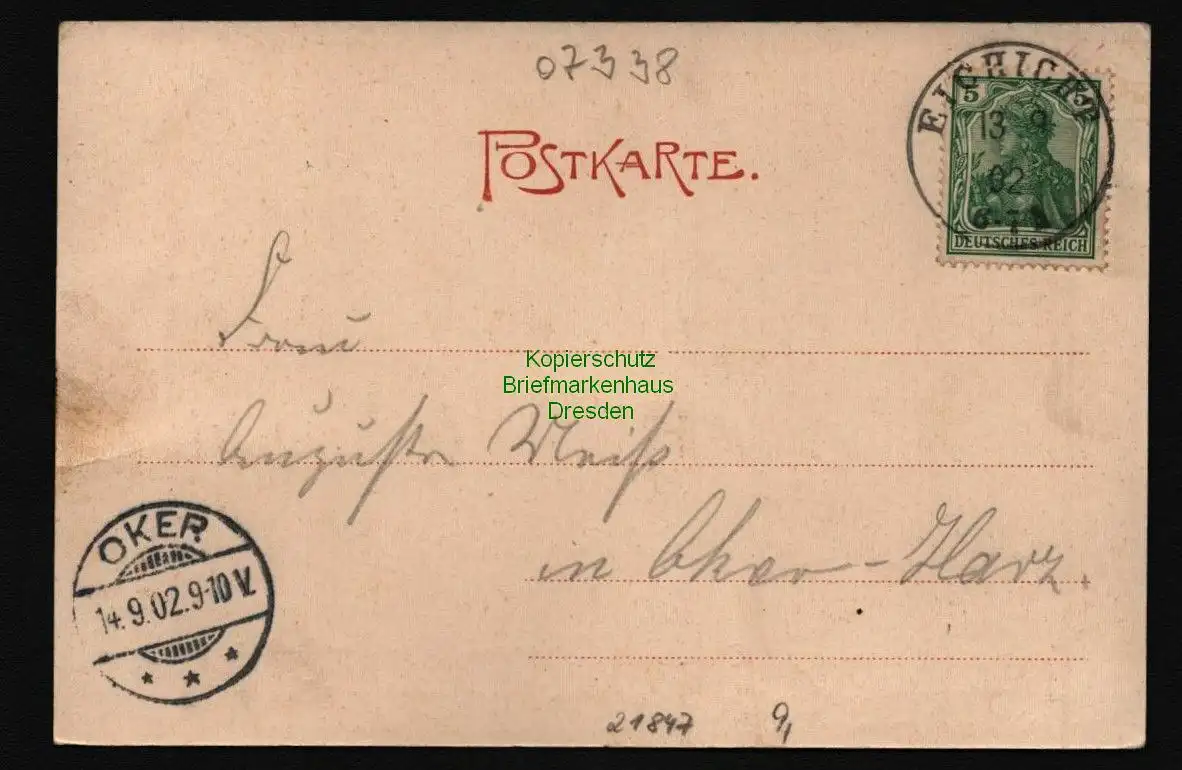 07338
EICHICHT
5 5
13 9
02
6-7 N
DEUTSCHES REICH
POSTKARTE.
Frau
Kopierschutz
Briefmarkenhaus
Dresden
Auguste Weiß
in Oker-Harz.
OKER.
14.9.02.9-10 V.
21847 9,